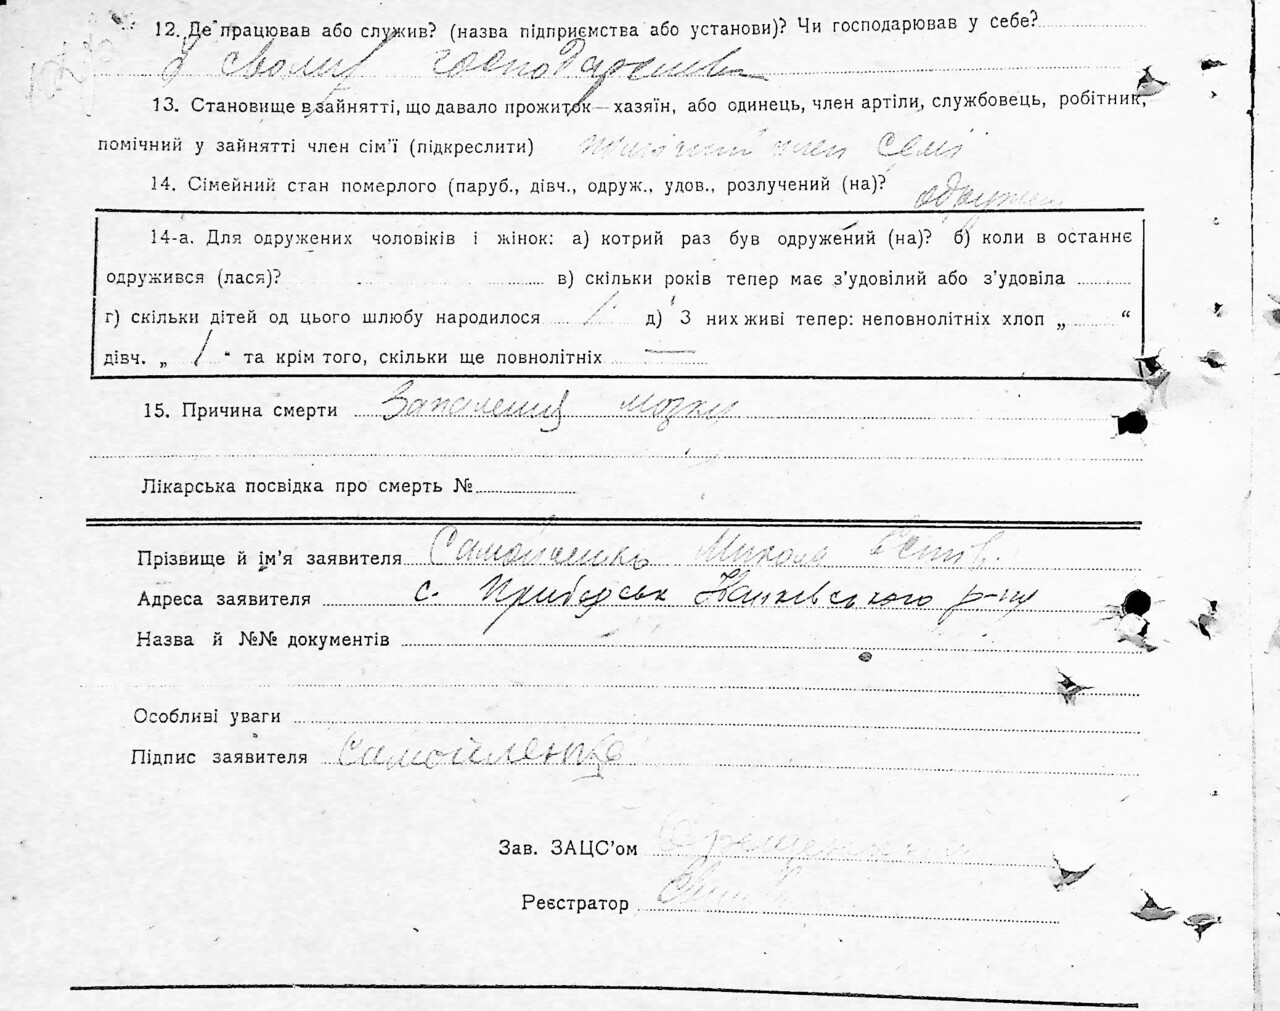 12. Де працював або служив? (назва підприємства або установи)? Чи господарював у себе?
У своим
13. Становище в зайнятті, що давало прожиток—хазяїн, або одинець, член артіли, службовець, робітник,
помічний у зайнятті член сім'ї (підкреслити) член семі
14. Сімейний стан померлого (паруб., дівч., одруж., удов., розлучений (на)? одружен
14-а. Для одружених чоловіків і жінок: а) котрий раз був одружений (на)? б) коли в останнє
одружився (лася)? в) скільки років тепер має з'удовілий або з'удовіла
г) скільки дітей од цього шлюбу народилося 1 д) З них живі тепер: неповнолітніх хлоп „ “
дівч. „ 1 “ та крім того, скільки ще повнолітніх —
15. Причина смерти Запалення мозку
Лікарська посвідка про смерть №
Прізвище й ім'я заявителя Самойленко Микола
Адреса заявителя с. Прибірськ р-ну
Назва й №№ документів
Особливі уваги
Підпис заявителя Самойленко
Зав. ЗАЦС'ом
Реєстратор